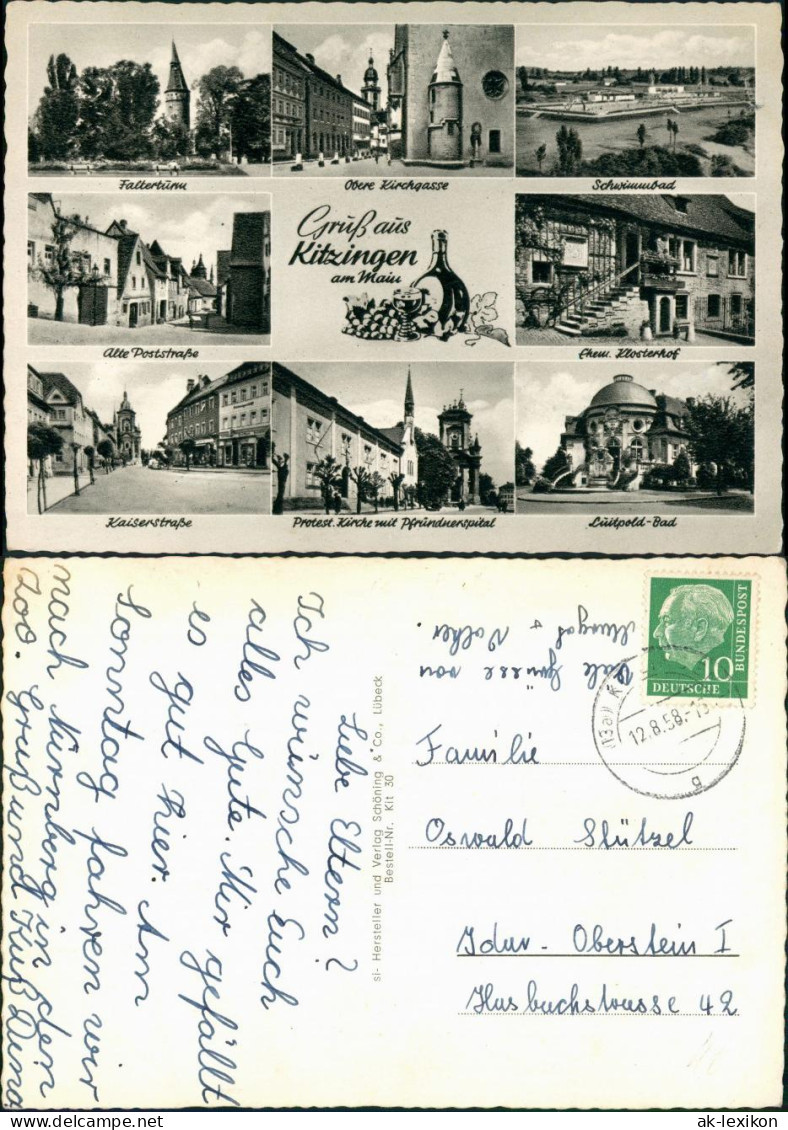 Falterturm
Obere Kirchgasse
Schwimmbad
Gruß aus
Kitzingen
am Main
Alte Poststraße
Ehem. Klosterhof
Kaiserstraße
Protest. Kirche mit Pfründnerspital
Luitpold-Bad
Liebe Eltern!
Ich wünsche Euch
alles Gute. Mir gefällt
es gut hier. Am
Sonntag fahren wir
nach Nürnberg in den
Zoo. Gruß und Kuß
si- Hersteller und Verlag Schöning & Co., Lübeck
Bestell-Nr. Kit 30
Viele Grüsse von
+ Volker.
10
DEUTSCHE
BUNDESPOST
12.8.58.-
Familie
Oswald Stützel
Idar-Oberstein I
Hasbachstrasse 42
ak-lexikon.com